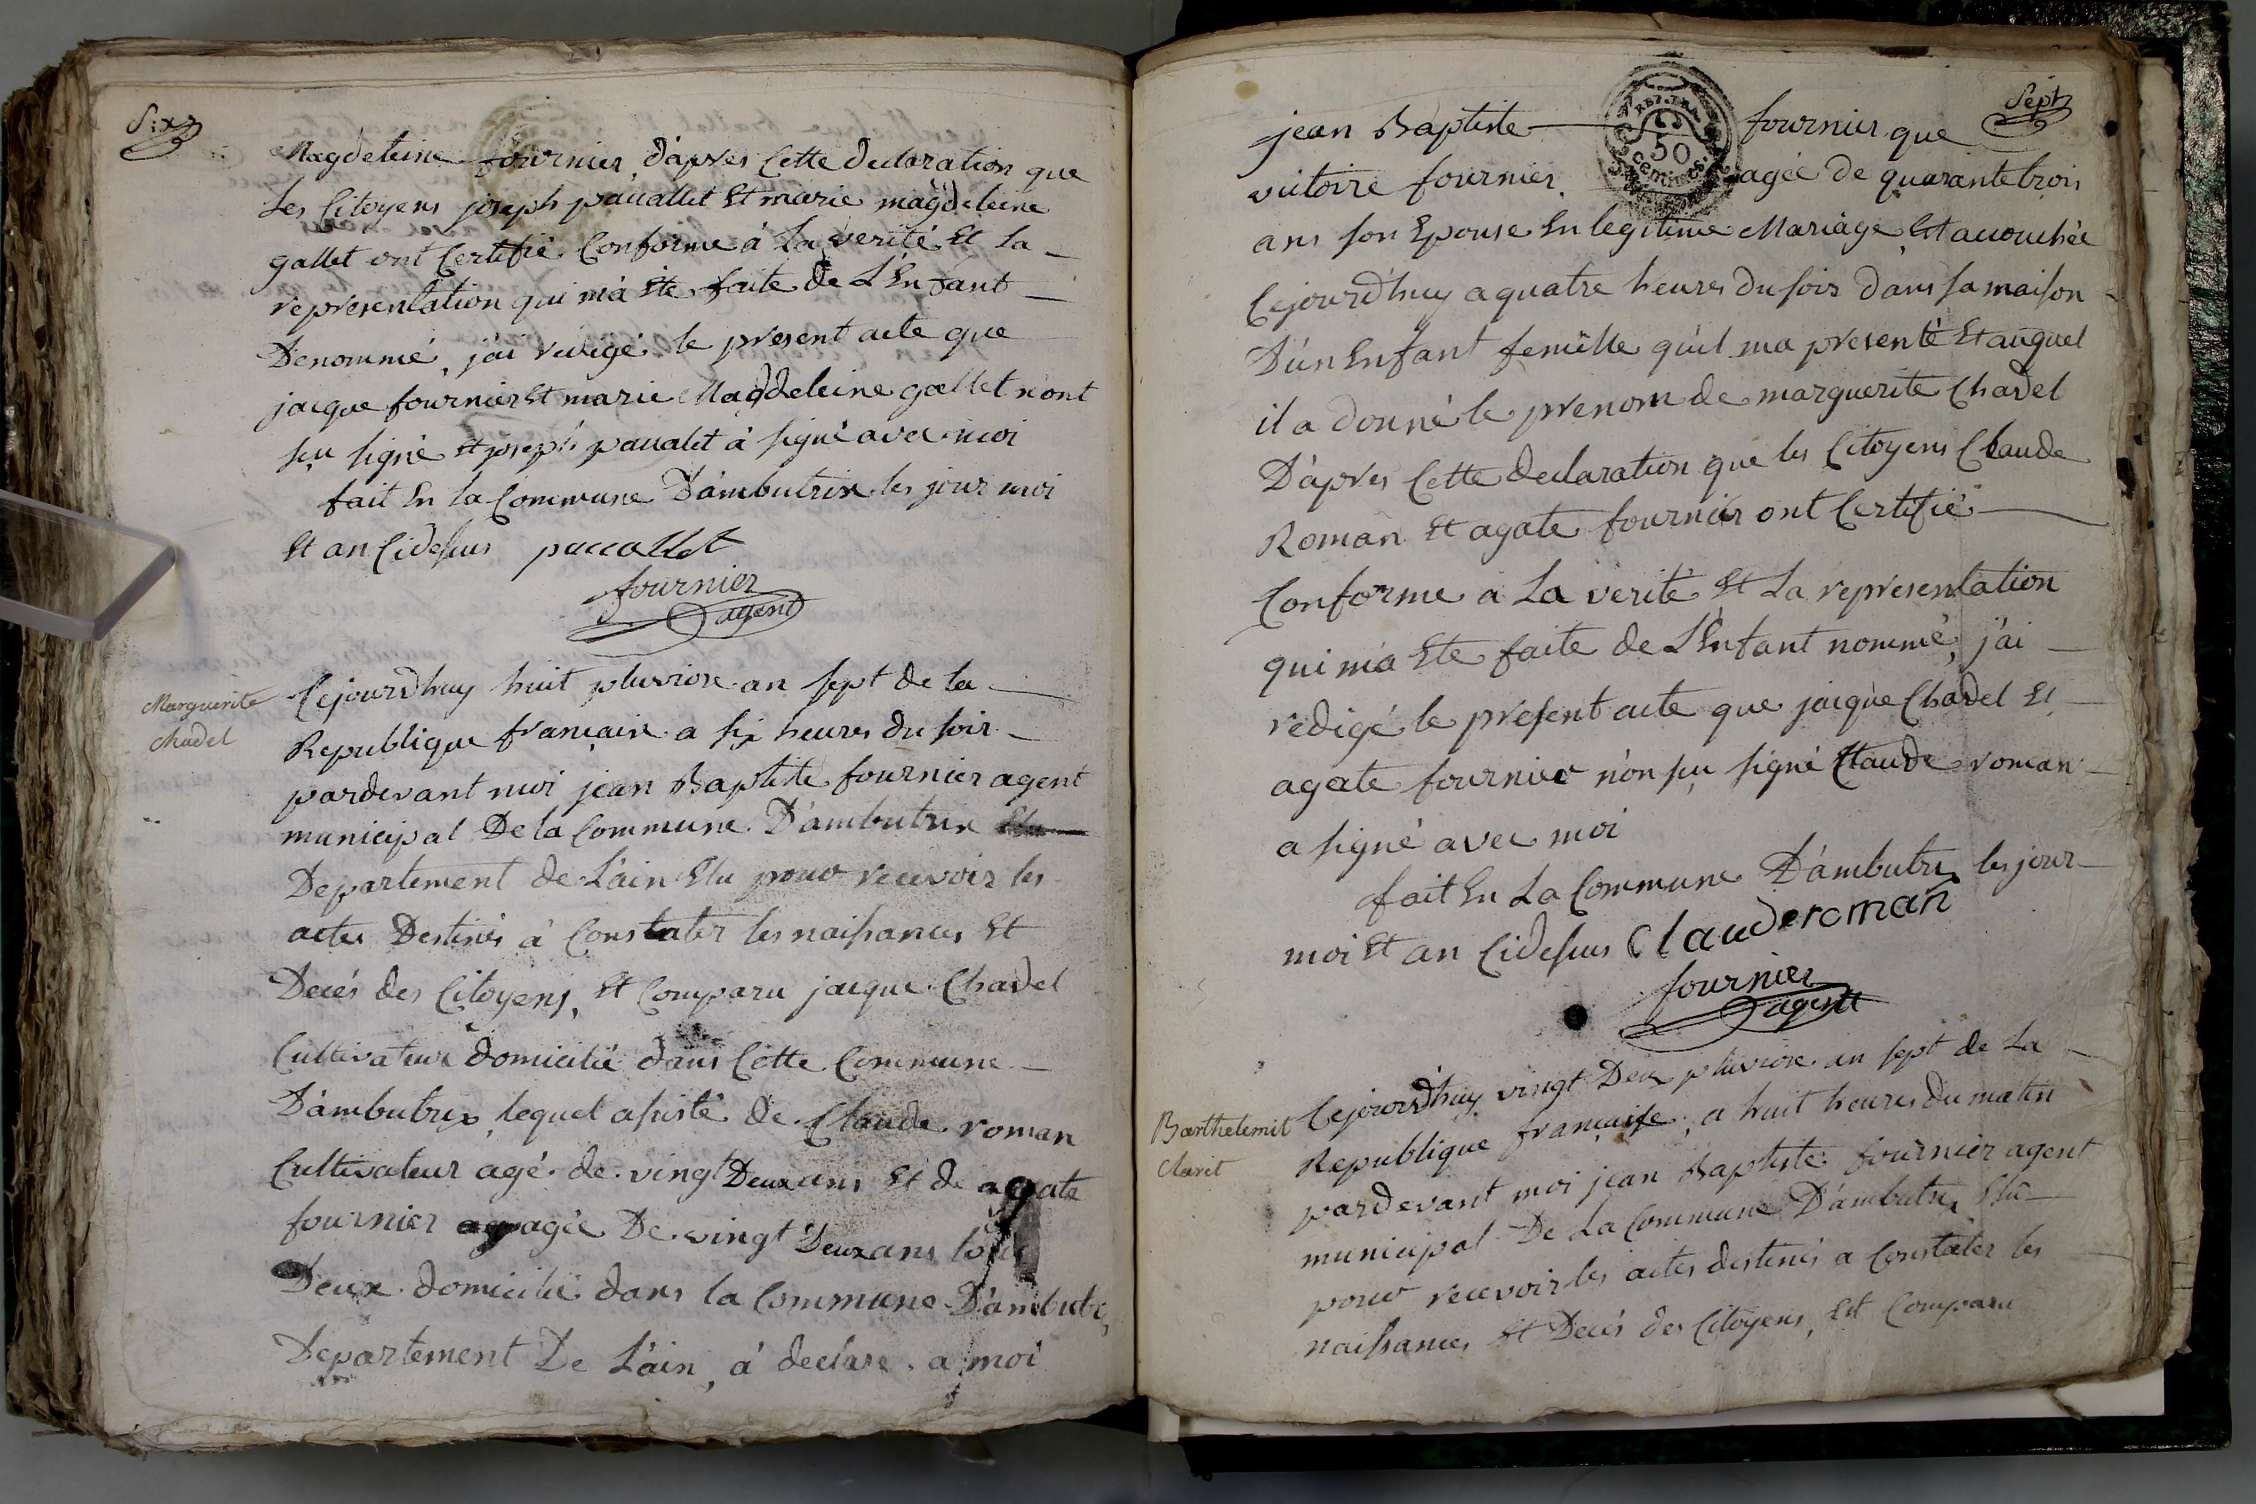 Six
Magdeleine fournier, d'apres Cette declaration que
Les Citoyens joseph pauallet Et marie magdeleine
gallet ont Certifié Conforme à La verité Et La
representation qui m'a Eté faite de L'Enfant
Denommé, j'ai redigé le present acte que
jacque fournier Et marie Magdeleine gallet n'ont
sçu signé Et joseph pauallet à signé avec moi
fait En la Commune D'ambutrix les jour moi
Et an Cidessus paccallet
fournier
agent
Marguerite
Chadel
Cejourd'huy huit pluviose an sept de la
Republique française a six heures du soir
pardevant moi jean Baptiste fournier agent
municipal De la Commune D'ambutrix Elu
Departement de L'ain Elu pour recevoir les
actes Destinés à Constater les naissances Et
Decés des Citoyens, Et Comparu jacque Chadel
Cultivateur domicilié dans Cette Commune
D'ambutrix, lequel assisté de Claude roman
Cultivateur agé de vingt Deux ans Et de agate
fournier agée De vingt Deux ans tous
Deux domicilié dans la Commune D'ambutrix
Departement De L'ain, à declaré a moi
Sept
REP. FRA
50
centimes.
jean Baptiste fournier que
victoire fournier agée de quarante trois
ans son Epouse En legitime Mariage, Est accouchée
Cejourd'huy a quatre heures du soir dans sa maison
D'un Enfant femelle qu'il ma presenté Et auquel
il a donné le prenom de marguerite Chadel
D'apres Cette declaration que les Citoyens Claude
Roman Et agate fournier ont Certifié
Conforme a La verité Et La representation
qui m'a Ete faite de L'Enfant nommé, j'ai
redigé le present acte que jacque Chadel Et
agate fournier n'on sçu signé Claude roman
a signé avec moi
fait En La Commune D'ambutrix les jour
moi Et an Cidessus Clauderoman
fournier
agent
Barthelemit
Claret
Cejourd'huy vingt Deux pluviose an sept de La
Republique française, a huit heures du matin
pardevant moi jean Baptiste fournier agent
municipal De La Commune D'ambutrix Elu
pour recevoir les actes destinés a Constater les
naissances Et Decés des Citoyens, Est Comparu